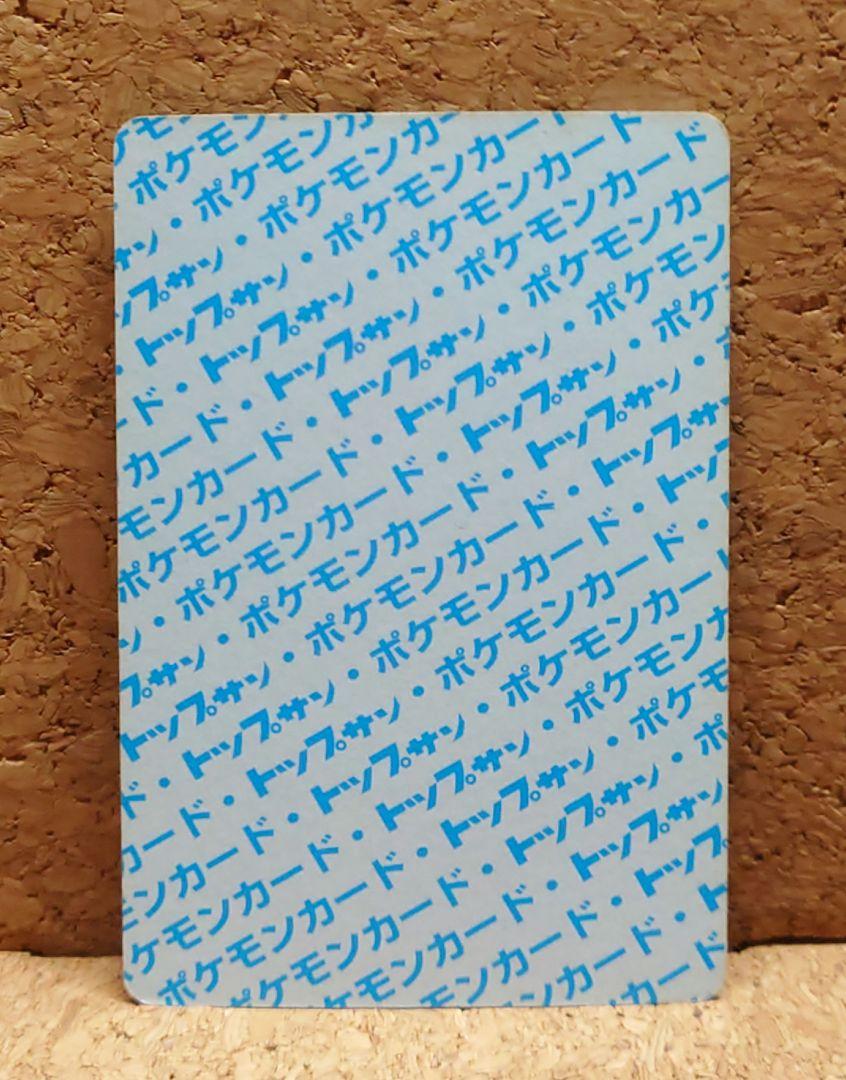 ケモン
ポケモンカ
・ポケモンカー
サン・ポケモンカード
ップサン・ポケモンカード
トップサン・ポケモンカー
ド・トップサン・ポケモン
カード・トップサン・ポケ
モンカード・トップサン・ポ
ポケモンカード・トップサン
・ポケモンカード・トップ
ン・ポケモンカード・
プサン・ポケモンカード
トップサン・ポケモンカ
ド・トップサン・ポケモ
カード・トップサン・ポ
ンカード・トップサン
ケモンカード・トップ
ポケモンカード・ト
ケモンカード
モンカ